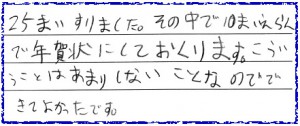 25まいすりました。その中で10まいえらん
で年賀状にしておくります。こうい
うことはあまりしないことなのでで
きてよかったです。